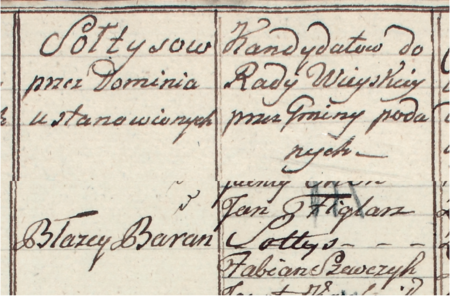 Sołtysow
przez Dominia
ustanowionych
Kandydatow do
Rady Wieyskiey
przez Gminy poda
nych
Jan Figlarz
Błazey Baran
Sołtys - - -
Fabian Szewczyk